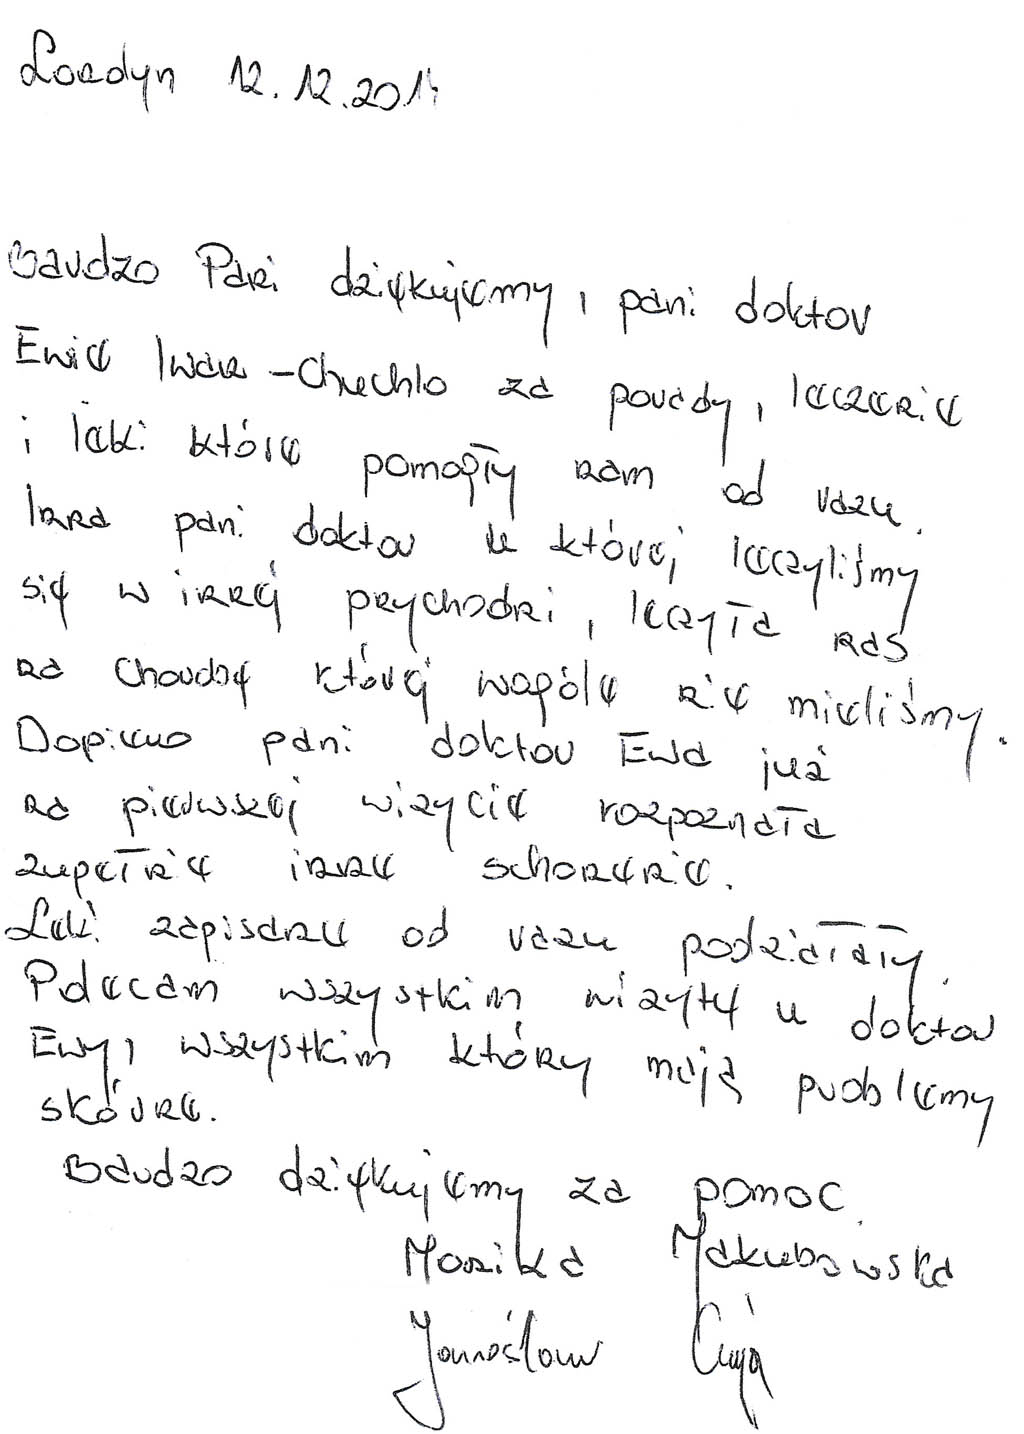 Londyn 12.12.2014
Bardzo Pani dziękujemy, pani doktor
Ewie Iwan-Chuchlo za porady, leczenie
i leki które pomogły nam od razu.
Inna pani doktor u której leczyliśmy
się w innej prychodni, leczyła nas
na chorobę której wogóle nie mieliśmy.
Dopiero pani doktor Ewa już
na pierwszej wizycie rozpoznała
zupełnie inne schorzenie.
Leki zapisane od razu podziałały.
Polecam wszystkim wizytę u doktor
Ewy, wszystkim którzy mają problemy
skórne.
Bardzo dziękujemy za pomoc.
Monika Jakubowska
Jarosław